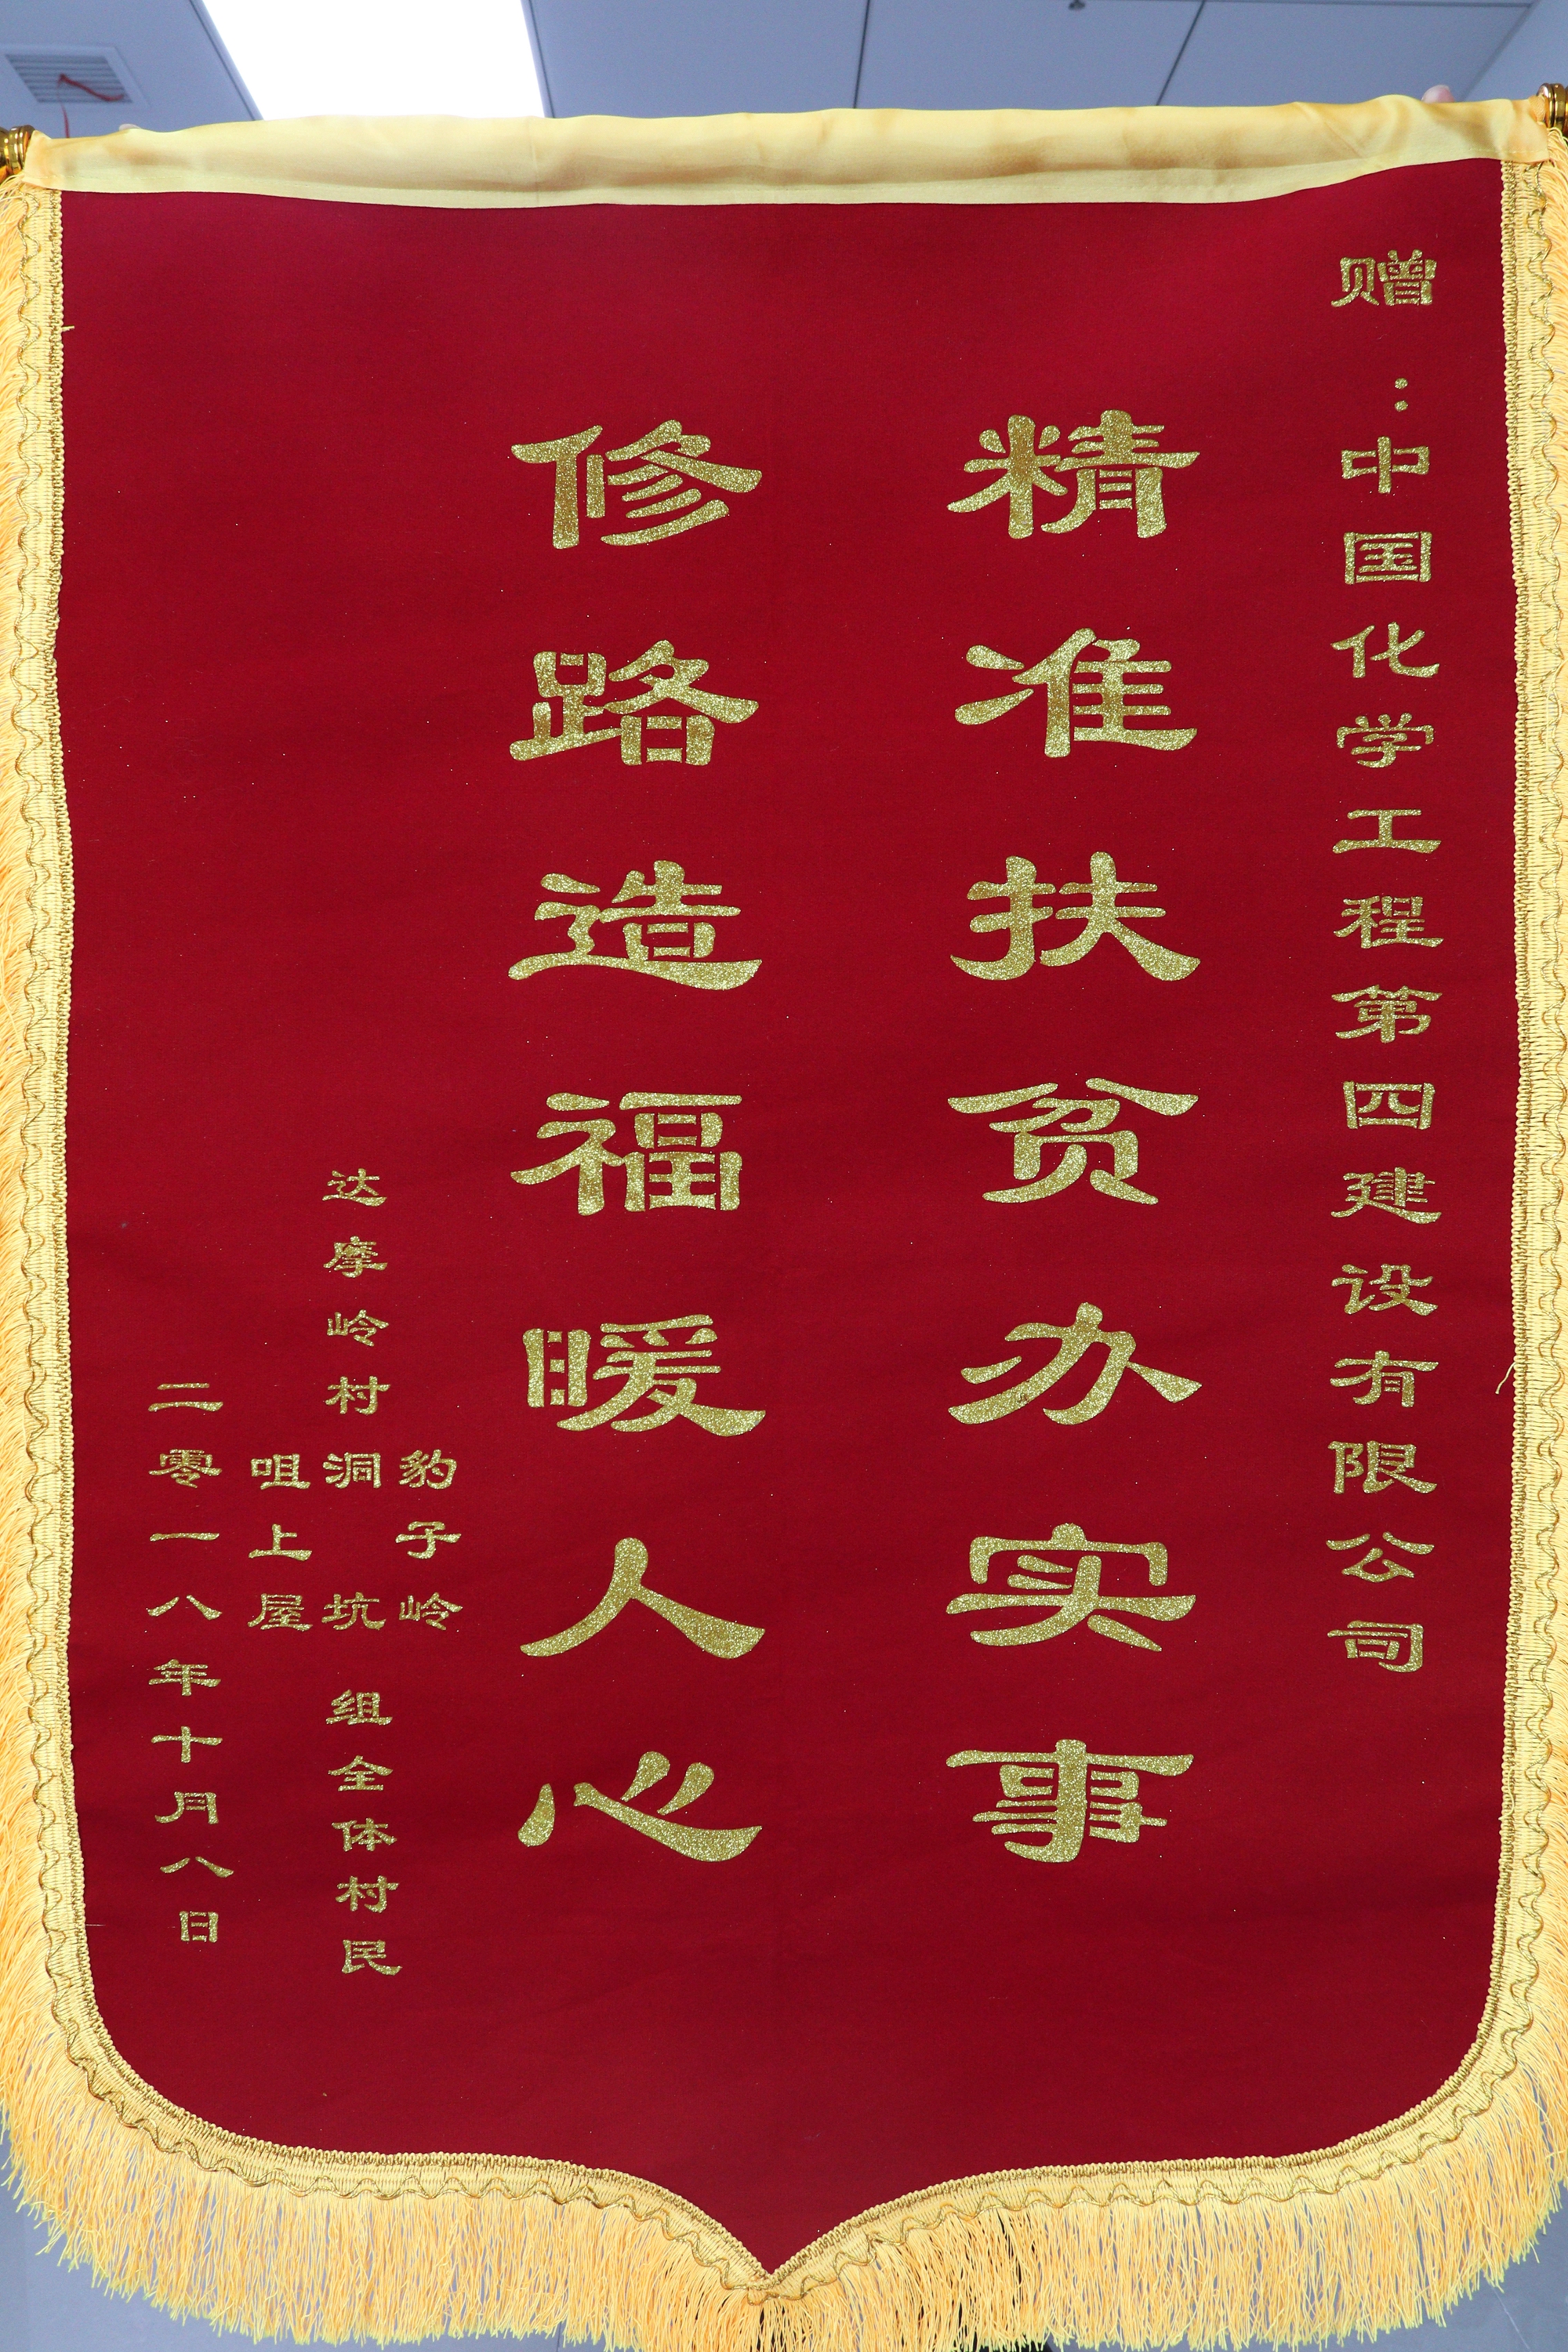 赠：中国化学工程第四建设有限公司
精准扶贫办实事
修路造福暖人心
豹子岭
达摩岭村洞坑组全体村民
咀上屋
二零一八年十月八日